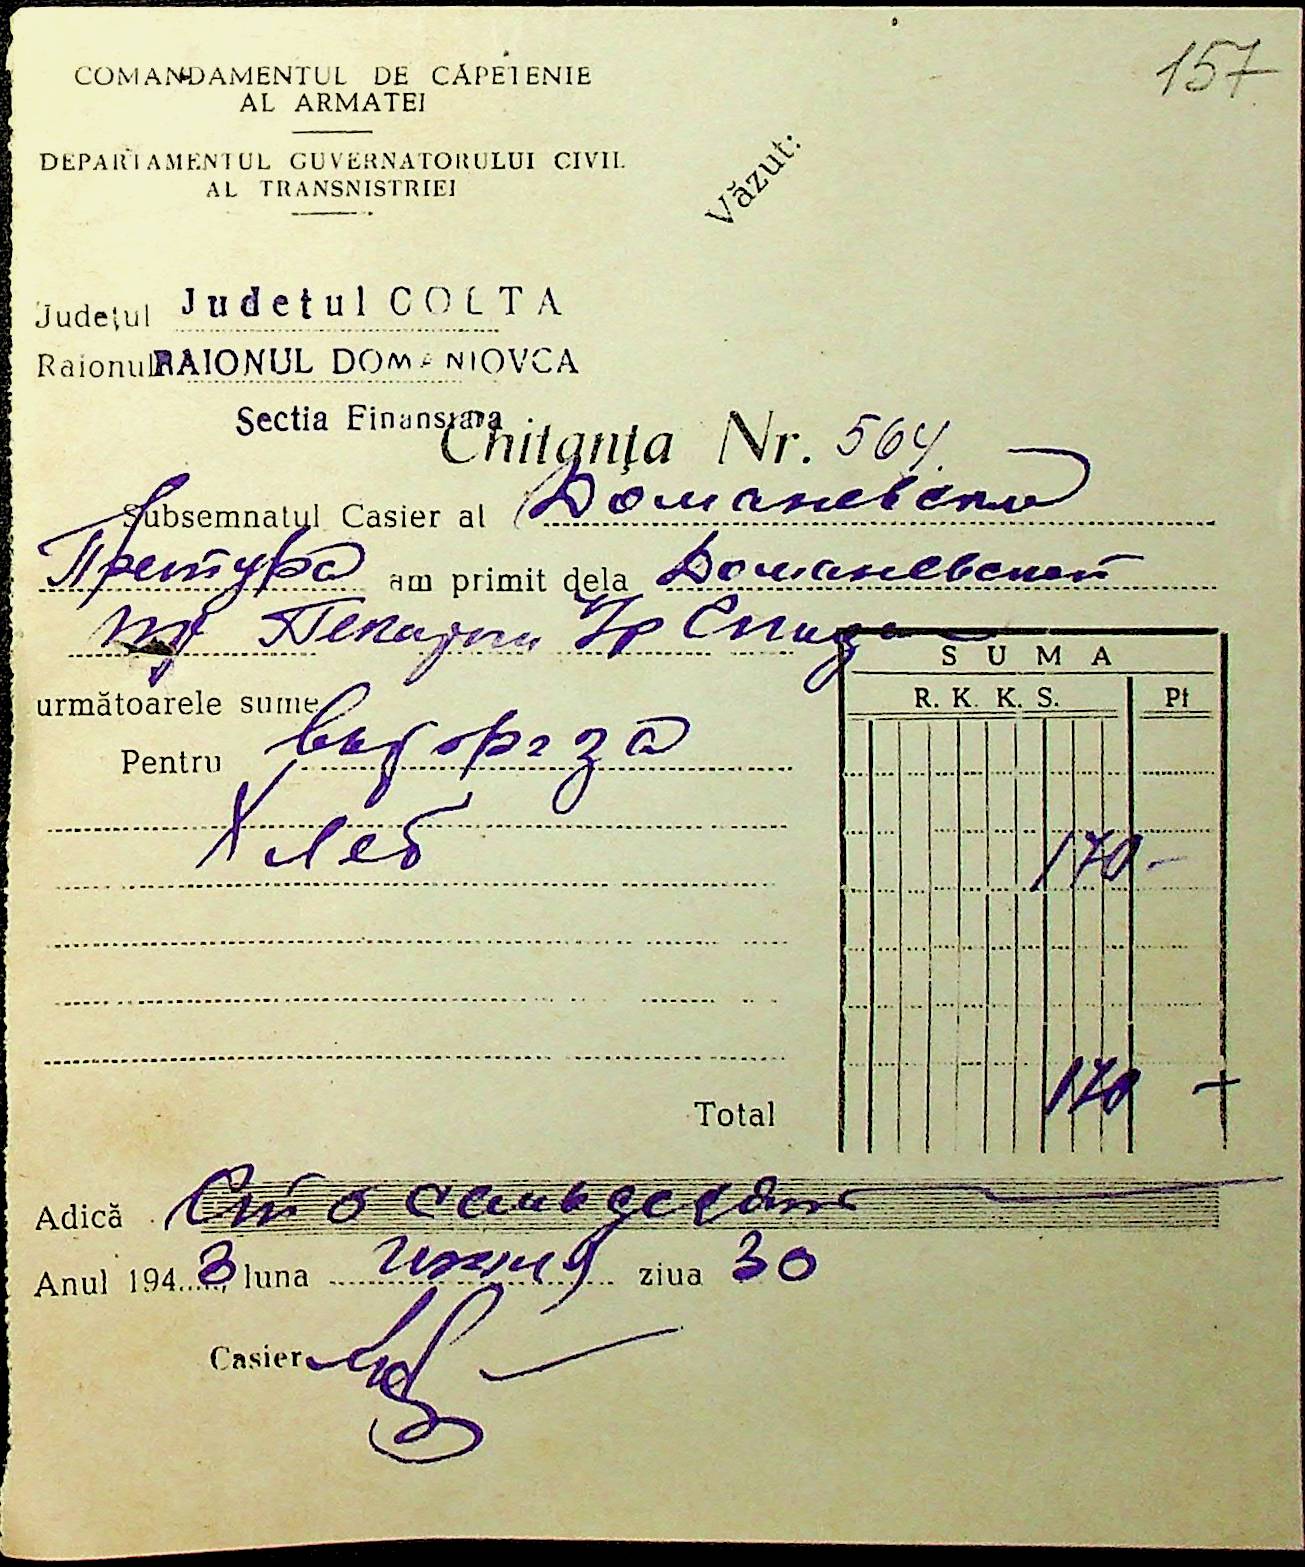 157
COMANDAMENTUL DE CĂPETENIE
AL ARMATEI
DEPARTAMENTUL GUVERNATORULUI CIVIL
AL TRANSNISTRIEI
Văzut:
Județul Judetul GOLTA
Raionul RAIONUL DOMANIOVCA
Sectia Finansiara
Chitanţa Nr. 564
Subsemnatul Casier al Доманевски
Претура am primit dela Доманевской
Пекарни Гр
SUMA
următoarele sume
R. K. K. S. Pf
Pentru за
Хлеб
170 -
Total 170 -
Adică Сто семьдесят
Anul 1943, luna июня ziua 30
Casier